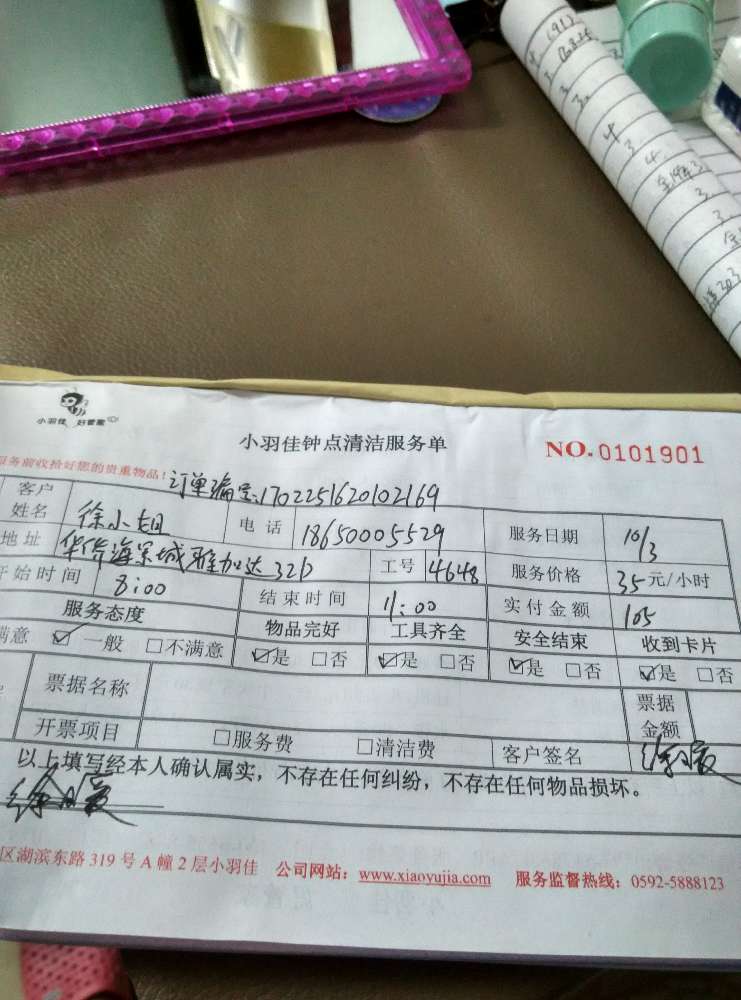 小羽佳 好管家
小羽佳钟点清洁服务单
NO.0101901
服务前收拾好您的贵重物品!
订单编号:170225162010 2169
客户姓名 徐小姐 电话 18650005529 服务日期 10/3
地址 华侨海景城雅加达32D 工号 4648 服务价格 35元/小时
开始时间 8:00 结束时间 11:00 实付金额 105
服务态度 物品完好 工具齐全 安全结束 收到卡片
满意 ☑一般 □不满意 ☑是 □否 ☑是 □否 ☑是 □否 ☑是 □否
票据名称 票据金额
开票项目 □服务费 □清洁费 客户签名
以上填写经本人确认属实,不存在任何纠纷,不存在任何物品损坏。
区湖滨东路319号A幢2层小羽佳 公司网站:www.xiaoyujia.com 服务监督热线:0592-5888123